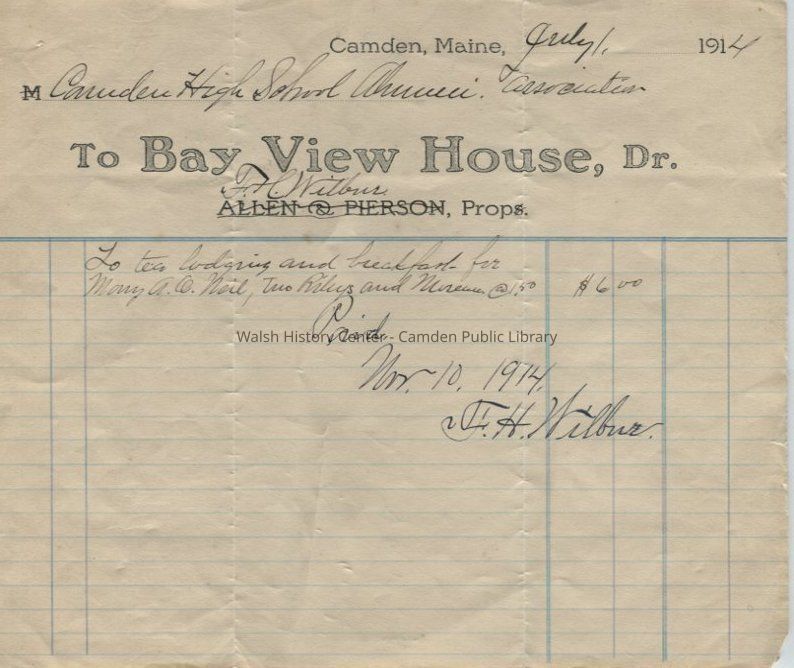 Camden, Maine, July 1. 1914
M Camden High School Alumni. Association
To Bay View House, Dr.
F. H. Wilbur
ALLEN & PIERSON, Props.
To tea lodging and breakfast for
A. O. Neil, Two and @ 1.50 $6 00
Paid
Walsh History Center - Camden Public Library
Nov. 10, 1914.
F. H. Wilbur.